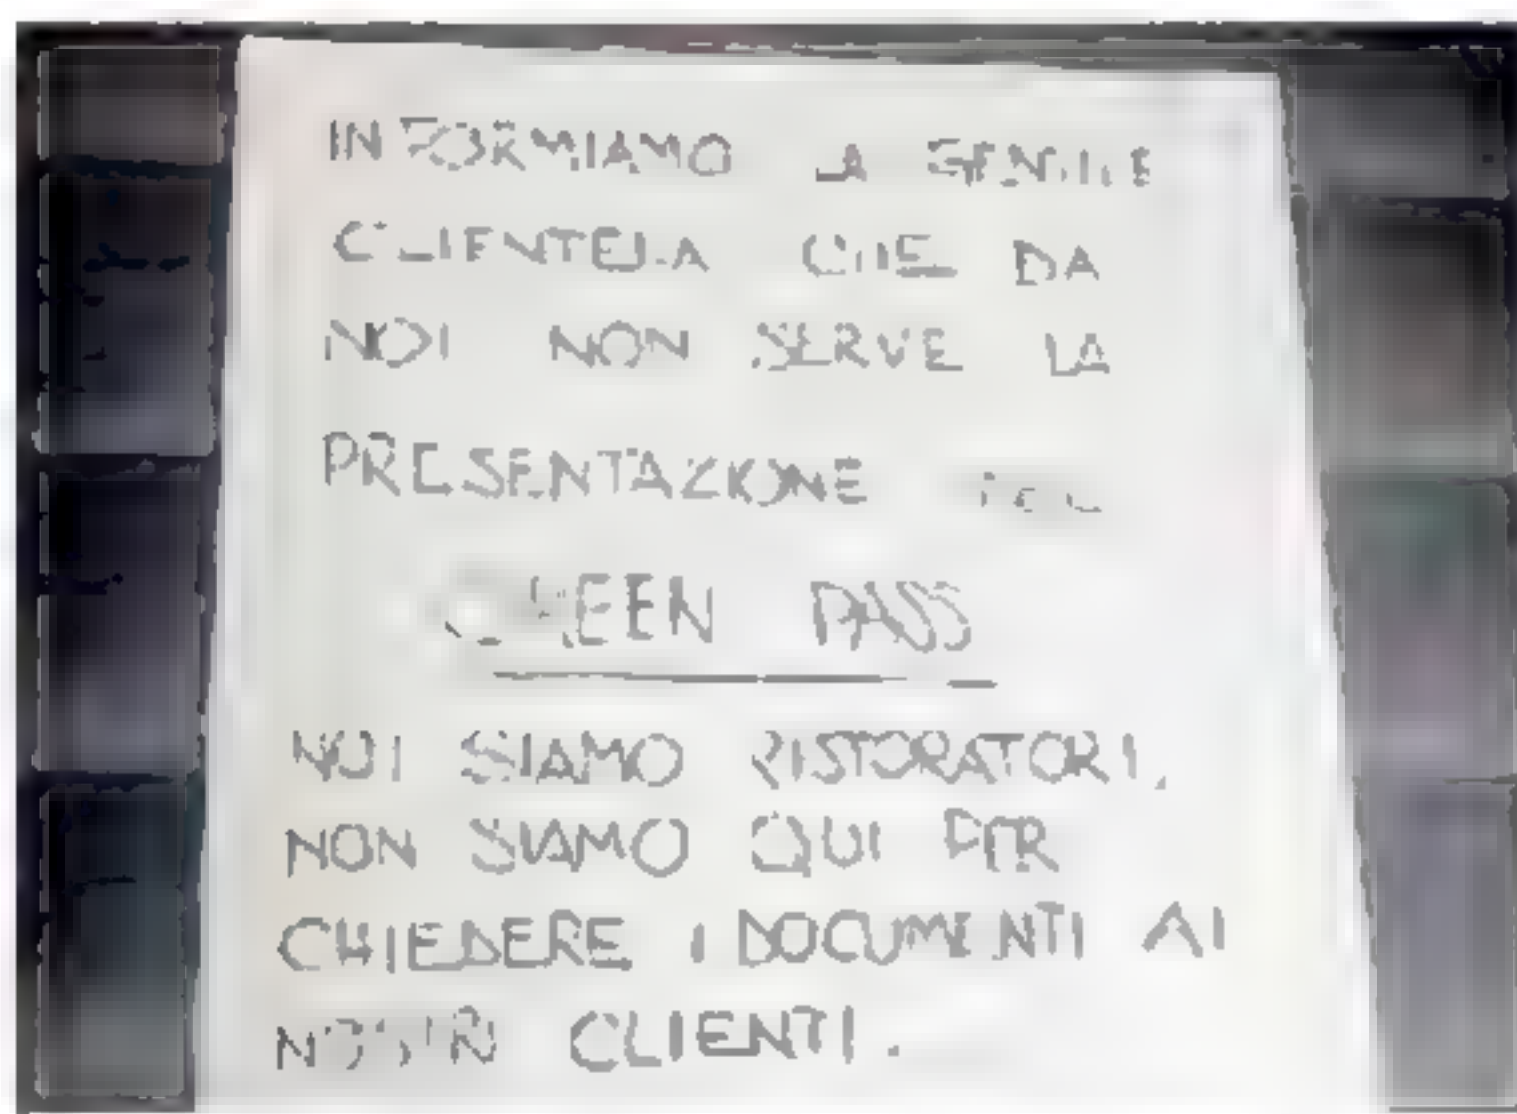 INFORMIAMO LA GENTILE
CLIENTELA CHE DA
NOI NON SERVE LA
PRESENTAZIONE
GREEN PASS
NOI SIAMO RISTORATORI,
NON SIAMO QUI PER
CHIEDERE I DOCUMENTI AI
NOSTRI CLIENTI.